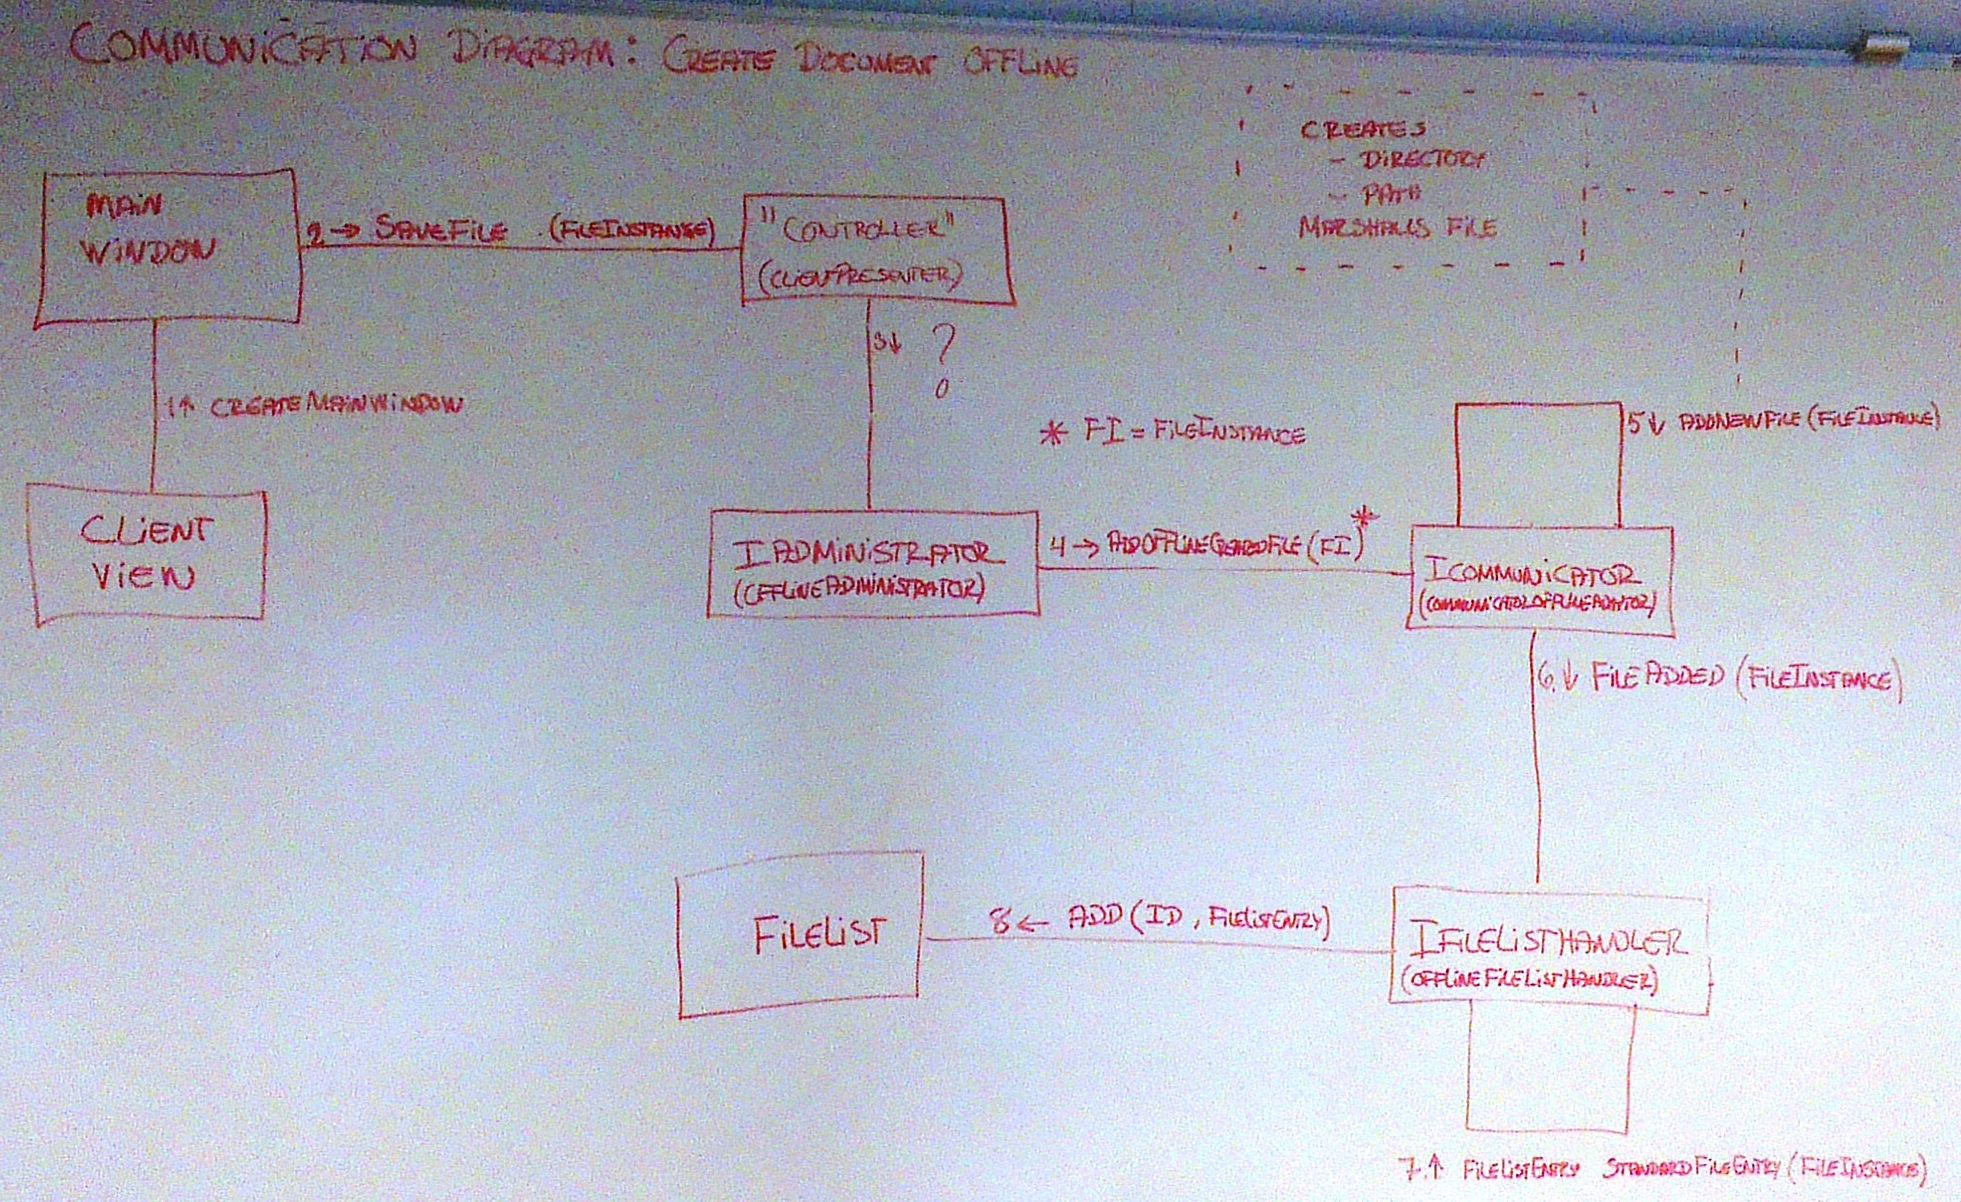 COMMUNICATION DIAGRAM: CREATE DOCUMENT OFFLINE
CREATES
- DIRECTORY
- PATH
MARSHALLS FILE
MAIN
WINDOW
2→ SAVEFILE (FILEINSTANCE)
"CONTROLLER"
(CLIENTPRESENTER)
3↓ ?
1↑ CREATEMAINWINDOW
* FI = FILEINSTANCE
5↓ ADDNEWFILE (FILEINSTANCE)
CLIENT
VIEW
IADMINISTRATOR
(OFFLINEADMINISTRATOR)
4→ ADDOFFLINECREATEDFILE (FI)*
ICOMMUNICATOR
6.↓ FILEADDED (FILEINSTANCE)
FILELIST
8← ADD (ID, FILELISTENTRY)
IFILELISTHANDLER
(OFFLINEFILELISTHANDLER)
7.↑ FILELISTENTRY STANDARDFILEENTRY (FILEINSTANCE)